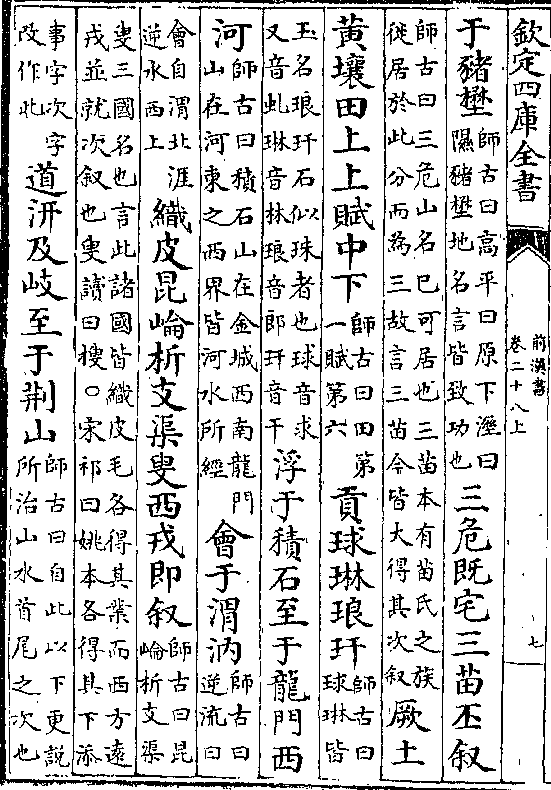 欽定四庫全書
前漢書
卷二十八上
七
于豬壄師古曰高平曰原下溼曰隰豬壄地名言皆致功也三危既宅三苗丕叙
師古曰三危山名已可居也三苗本有苗氏之族徙居於此分而為三故言三苗今皆大得其次叙厥土
黄壤田上上賦中下師古曰田第一賦第六貢球琳琅玕師古曰球琳皆
玉名琅玕石似珠者也球音求又音虬琳音林琅音郎玕音干浮于積石至于龍門西
河師古曰積石山在金城西南龍門山在河東之西界皆河水所經會于渭汭師古曰逆流曰
會自渭北涯逆水西上織皮昆崘析支渠叟西戎即叙師古曰昆崘析支渠
叟三國名也言此諸國皆織皮毛各得其業而西方遠戎並就次叙也叟讀曰搜○宋祁曰姚本各得其下添
事字次字改作此道汧及岐至于荆山師古曰自此以下更説所治山水首尾之次也